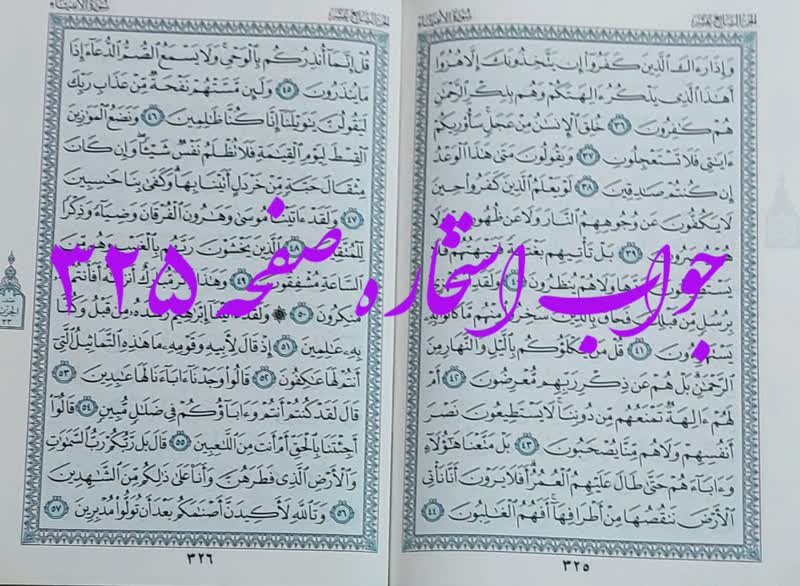 سُورَةُ الأَنبِيَاءِ
الجزء السابع عشر
وَإِذَا رَءَاكَ الَّذِينَ كَفَرُوٓا۟ إِن يَتَّخِذُونَكَ إِلَّا هُزُوًا
أَهَٰذَا الَّذِى يَذْكُرُ ءَالِهَتَكُمْ وَهُم بِذِكْرِ الرَّحْمَٰنِ
هُمْ كَٰفِرُونَ ٣٦ خُلِقَ الْإِنسَٰنُ مِنْ عَجَلٍ سَأُو۟رِيكُمْ
ءَايَٰتِى فَلَا تَسْتَعْجِلُونِ ٣٧ وَيَقُولُونَ مَتَىٰ هَٰذَا الْوَعْدُ
إِن كُنتُمْ صَٰدِقِينَ ٣٨ لَوْ يَعْلَمُ الَّذِينَ كَفَرُوا۟ حِينَ
لَا يَكُفُّونَ عَن وُجُوهِهِمُ النَّارَ وَلَا عَن ظُهُورِهِمْ وَلَا
هُمْ يُنصَرُونَ ٣٩ بَلْ تَأْتِيهِم بَغْتَةً فَتَبْهَتُهُمْ فَلَا
يَسْتَطِيعُونَ رَدَّهَا وَلَا هُمْ يُنظَرُونَ ٤٠ وَلَقَدِ اسْتُهْزِئَ
بِرُسُلٍ مِّن قَبْلِكَ فَحَاقَ بِالَّذِينَ سَخِرُوا۟ مِنْهُم مَّا كَانُوا۟ بِهِۦ
يَسْتَهْزِءُونَ ٤١ قُلْ مَن يَكْلَؤُكُم بِالَّيْلِ وَالنَّهَارِ مِنَ
الرَّحْمَٰنِ بَلْ هُمْ عَن ذِكْرِ رَبِّهِم مُّعْرِضُونَ ٤٢ أَمْ
لَهُمْ ءَالِهَةٌ تَمْنَعُهُم مِّن دُونِنَا لَا يَسْتَطِيعُونَ نَصْرَ
أَنفُسِهِمْ وَلَا هُم مِّنَّا يُصْحَبُونَ ٤٣ بَلْ مَتَّعْنَا هَٰٓؤُلَآءِ
وَءَابَآءَهُمْ حَتَّىٰ طَالَ عَلَيْهِمُ الْعُمُرُ أَفَلَا يَرَوْنَ أَنَّا نَأْتِى
الْأَرْضَ نَنقُصُهَا مِنْ أَطْرَافِهَآ أَفَهُمُ الْغَٰلِبُونَ ٤٤
٣٢٥
سُورَةُ الأَنبِيَاءِ
الجزء السابع عشر
قُلْ إِنَّمَآ أُنذِرُكُم بِالْوَحْىِ وَلَا يَسْمَعُ الصُّمُّ الدُّعَآءَ إِذَا
مَا يُنذَرُونَ ٤٥ وَلَئِن مَّسَّتْهُمْ نَفْحَةٌ مِّنْ عَذَابِ رَبِّكَ
لَيَقُولُنَّ يَٰوَيْلَنَآ إِنَّا كُنَّا ظَٰلِمِينَ ٤٦ وَنَضَعُ الْمَوَٰزِينَ
الْقِسْطَ لِيَوْمِ الْقِيَٰمَةِ فَلَا تُظْلَمُ نَفْسٌ شَيْـًٔا وَإِن كَانَ
مِثْقَالَ حَبَّةٍ مِّنْ خَرْدَلٍ أَتَيْنَا بِهَا وَكَفَىٰ بِنَا حَٰسِبِينَ
٤٧ وَلَقَدْ ءَاتَيْنَا مُوسَىٰ وَهَٰرُونَ الْفُرْقَانَ وَضِيَآءً وَذِكْرًا
لِّلْمُتَّقِينَ ٤٨ الَّذِينَ يَخْشَوْنَ رَبَّهُم بِالْغَيْبِ وَهُم مِّنَ
السَّاعَةِ مُشْفِقُونَ ٤٩ وَهَٰذَا ذِكْرٌ مُّبَارَكٌ أَنزَلْنَٰهُ أَفَأَنتُمْ لَهُۥ
مُنكِرُونَ ٥٠ وَلَقَدْ ءَاتَيْنَآ إِبْرَٰهِيمَ رُشْدَهُۥ مِن قَبْلُ وَكُنَّا
بِهِۦ عَٰلِمِينَ ٥١ إِذْ قَالَ لِأَبِيهِ وَقَوْمِهِۦ مَا هَٰذِهِ التَّمَاثِيلُ الَّتِىٓ
أَنتُمْ لَهَا عَٰكِفُونَ ٥٢ قَالُوا۟ وَجَدْنَآ ءَابَآءَنَا لَهَا عَٰبِدِينَ ٥٣
قَالَ لَقَدْ كُنتُمْ أَنتُمْ وَءَابَآؤُكُمْ فِى ضَلَٰلٍ مُّبِينٍ ٥٤ قَالُوٓا۟
أَجِئْتَنَا بِالْحَقِّ أَمْ أَنتَ مِنَ اللَّٰعِبِينَ ٥٥ قَالَ بَل رَّبُّكُمْ رَبُّ السَّمَٰوَٰتِ
وَالْأَرْضِ الَّذِى فَطَرَهُنَّ وَأَنَا۠ عَلَىٰ ذَٰلِكُم مِّنَ الشَّٰهِدِينَ
٥٦ وَتَاللَّهِ لَأَكِيدَنَّ أَصْنَٰمَكُم بَعْدَ أَن تُوَلُّوا۟ مُدْبِرِينَ ٥٧
٣٢٦
جواب استخاره صفحه ۳۲۵